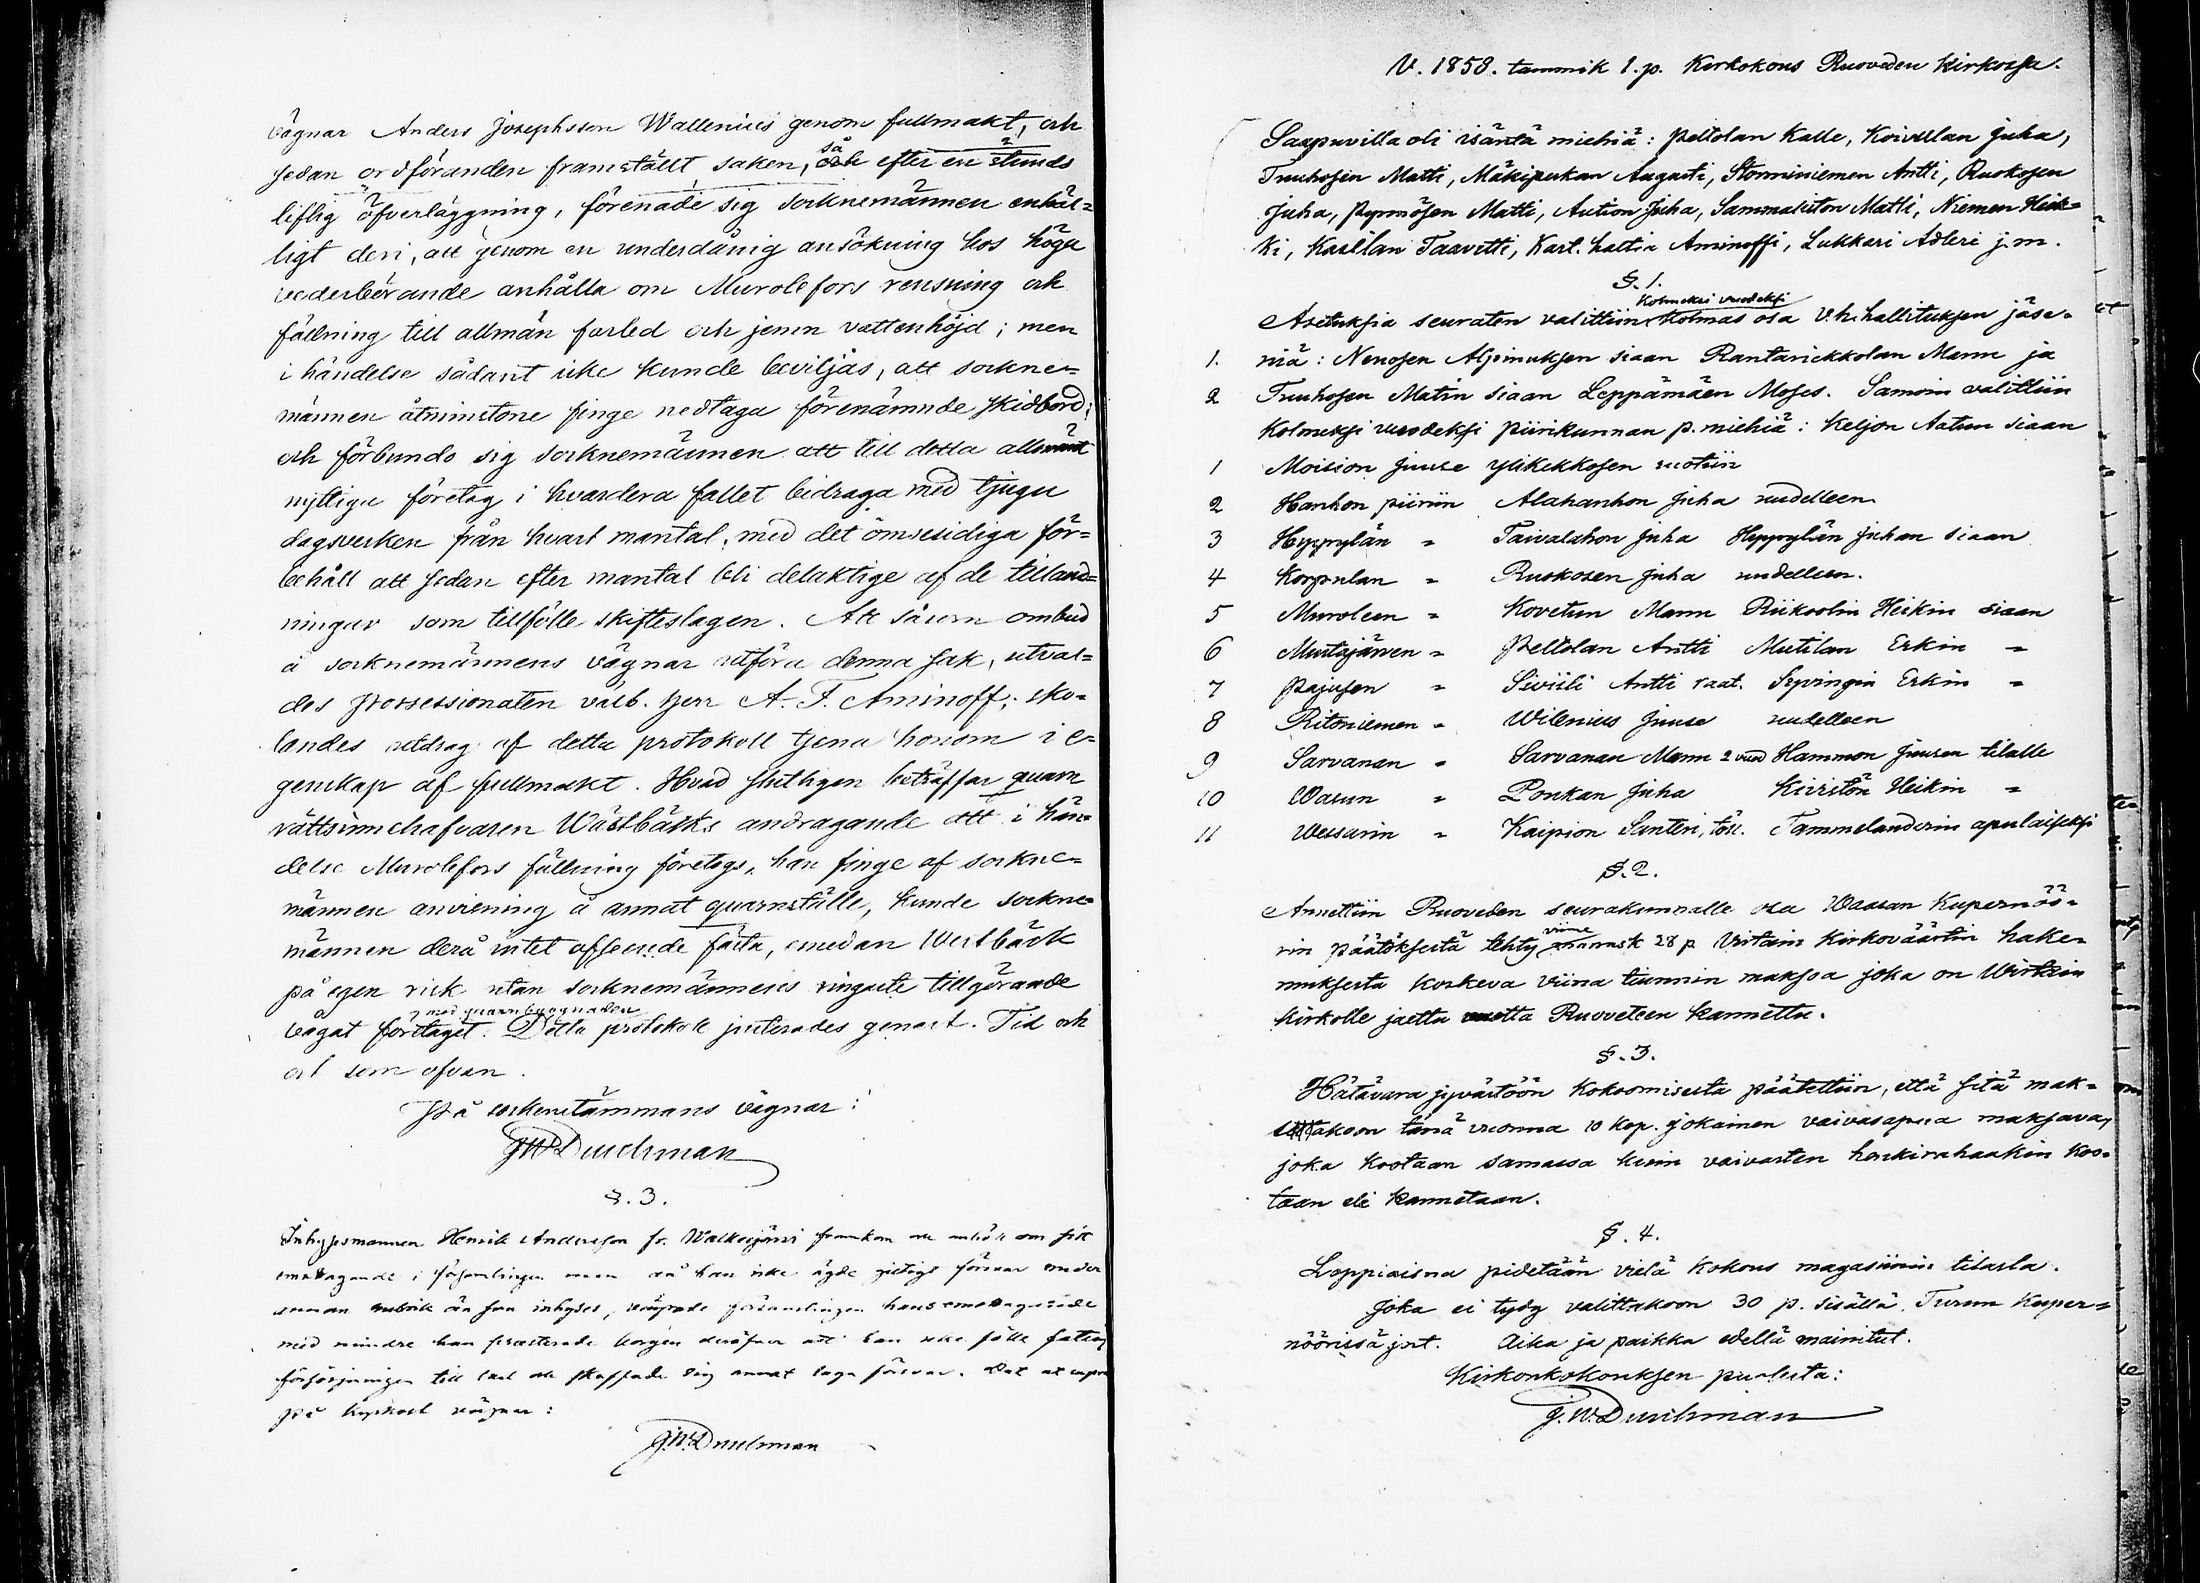 vägnar Anders Josephsson Wallenius genom fullmakt, och
sedan ordföranden framställt saken, så efter en stunds
liflig öfverläggning, förenade sig socknemännen enhäl-
ligt deri, att genom en underdånig ansökning hos höga
vederbörande anhålla om Murolefors rensning och
fällning till allmän farled och jemn vattenhöjd; men
i händelse sådant icke kunde beviljas, att sockne-
männen åtminstone finge nedtaga förenämnde skidbord;
och förbundo sig socknemännen att till detta allmänt
nyttiga företag i hvardera fallet bidraga med tjugu
dagsverken från hvart mantal, med det ömsesidiga för-
behåll att sedan efter mantal bli delaktige af de tilland-
ningar som tillfölle skifteslagen. Att såsom ombud
å socknemännens vägnar utföra denna sak, utval-
des possessionaten välb. herr A. F. Aminoff, sko-
landes utdrag af detta protokoll tjena honom i e-
genskap af fullmakt. Hvad slutligen beträffar quarn
rättsinnehafvaren Wästbäcks andragande att i hän-
delse Murolefors fällning företogs, han finge af sockne-
männen anvisning å annat quarnställe, kunde sockne-
männen derå intet afseende fästa, emedan Westbäck
på egen risk utan socknemännens ringaste tillgörande
med quarnbyggnaden
vågat företaget. Detta protokoll justerades genast. Tid och
ort som ofvan.
På sockenstämmans vägnar:
J W Durchman
§. 3.
Inhysesmannen Henrik Andersson fr. Walkeajärvi framkom och anhöll om sitt
emottagande i församlingen men då han icke ägde giltigt försvar under
annan rubrik än som inhyses, vägrade församlingen hans emottagande
med mindre han presterade borgen deröfver att han icke fölle fattig
försörjningen till last och skaffade sig annat laga försvar. Dat ut supra
på kyrkost vägnar:
J.W. Durchman
V. 1858. tammik 1. p. Kirkokous Ruoveden kirkossa.
Saapuvilla oli isäntä miehiä: Peltolan Kalle, Koivulan Juha,
Tuuhosen Matti, Mäkipukan Augusti, Storminiemen Antti, Ruokosen
Juha, Pyynösen Matti, Aution Juha, Sammaliston Matti, Niemen Heik-
ki, Kaallan Taavetti, Kart. haltia Aminoffi, Lukkari Adleri j.m.
§. 1.
Kolmeksi vuodeksi
Asetuksia seuraten valittiin kolmas osa V.h. hallituksen jäse-
1. niä: Nenosen Alpinuksen siaan Rantarickkolan Mannu ja
2 Tuuhosen Matin siaan Leppämäen Moses. Samoin valittiin
Kolmeksi vuodeksi piirikunnan p. miehiä: Keljon Aatun siaan
1 Moision Juuse Ylikekkosen ruotiin
2 Hanhon piiriin Alahanhon Juha uudelleen
3 Hyppylän " Taivalahon Juha Hyppylän Juhan siaan
4 Korpulan " Ruokosen Juha uudelleen.
5 Muroleen " Kovetun Mannu Riikoolin Heikin siaan
6 Mustajärven " Peltolan Antti Mutilan Erkin "
7 Pajusen " Siviili Antti raat. Springin Erkin "
8 Ritoniemen " Wilenius Juuse uudelleen
9 Sarvanan " Sarvanan Mannu 2 vuod Hammon Juusen tilalle
10 Wasun " Ponkan Juha Kivistön Heikin "
11 Wessarin " Kaipion Santeri, tör. Tammelanderin apulaiseksi
§. 2.
Annettiin Ruoveden seurakunnalle osa Waasan Kupernöö-
rin päätöksestä tehty viime marrask 28 p Virtain Kirkovääärtin hake-
muksesta koskeva viina tiunnin maksoa joka on Wirtain
kirkolle jaettu mutta Ruoveteen kannettu.
§. 3.
Hätävara jyvästöön Kokoomisesta päätettiin, että sitä mak-
settakoon tänä vuonna 10 kop. jokainen vaivasapua maksava,
joka kootaan samassa kuin vaivasten henkirahaakin koo-
taan eli kannetaan.
§. 4.
Loppiaisna pidetään vielä kokous magasiinin tilasta.
Joka ei tydy valittakoon 30 p. sisällä Turun Kuper-
nöörissä jnt. Aika ja paikka edellä mainitut.
Kirkonkokouksen puolesta:
J. W. Durchman